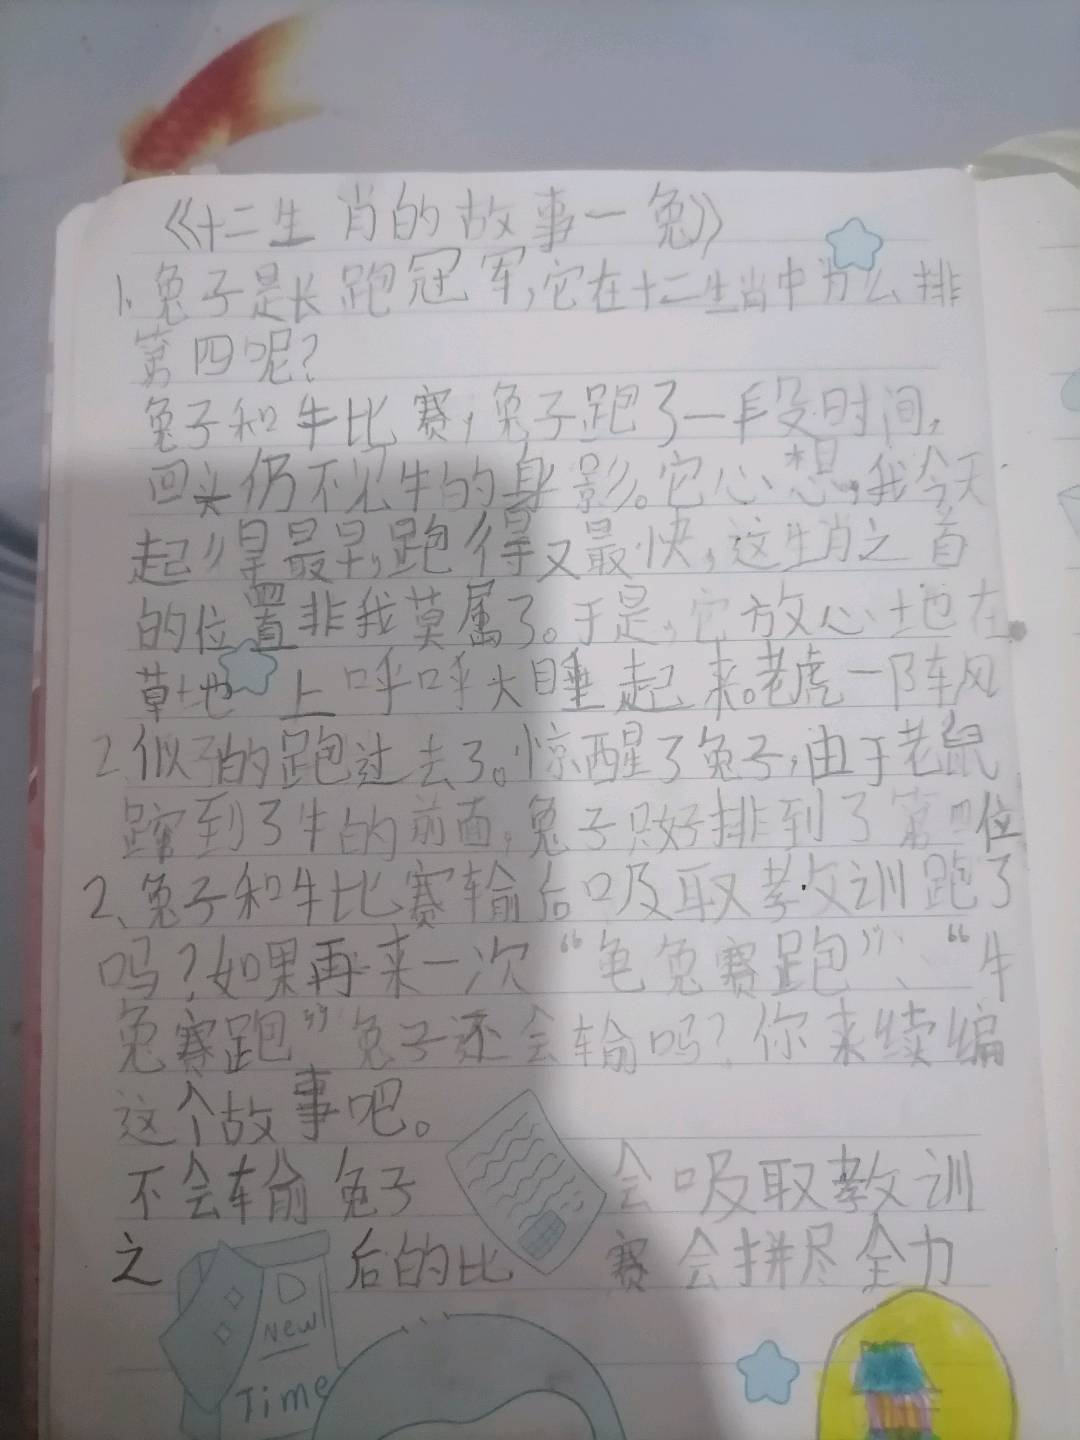 《十二生肖的故事一兔》
1.兔子是长跑冠军,它在十二生肖中为么排
第四呢?
兔子和牛比赛,兔子跑了一段时间,
回头仍不见牛的身影。它心想,我今天
起得最早,跑得又最快,这生肖之首
的位置非我莫属了。于是,它放心地在
草地上呼呼大睡起来。老虎一阵风
2.似的跑过去了。惊醒了兔子,由于老鼠
蹿到了牛的前面,兔子只好排到了第四位
2、兔子和牛比赛输后吸取教训跑了
吗?如果再来一次“龟兔赛跑”、“牛
兔赛跑”兔子还会输吗?你来续编
这个故事吧。
不会输兔子会吸取教训
之后的比赛会拼尽全力
New
Time